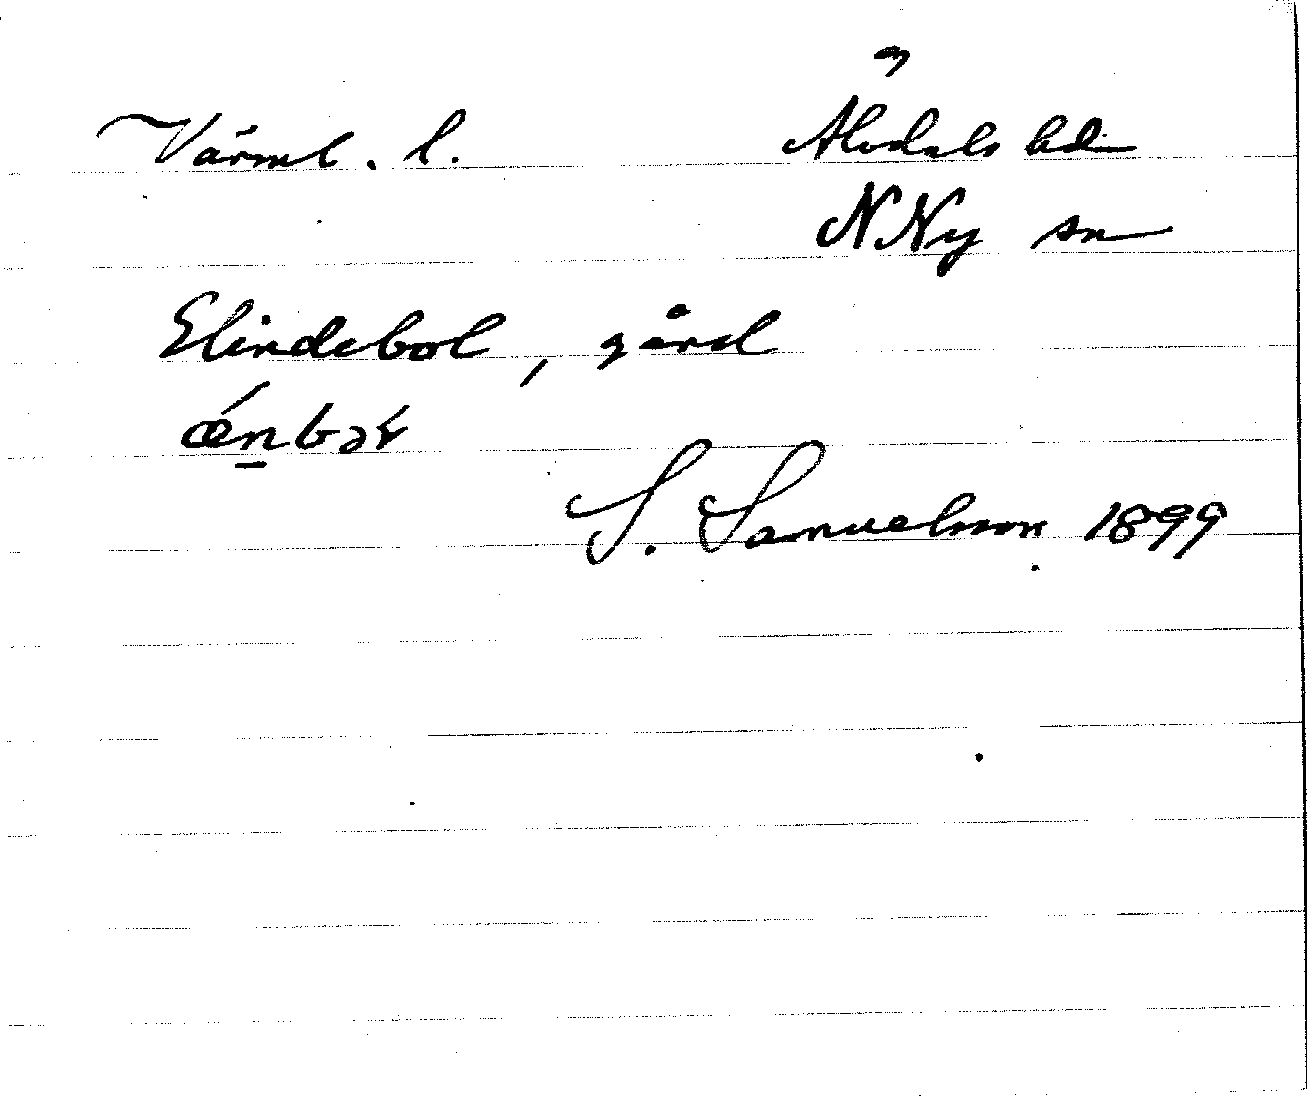 Värml. l. Älvdals hd
N Ny sn
Elindebol, gård
ǽn̲bət
S. Samuelsson 1899